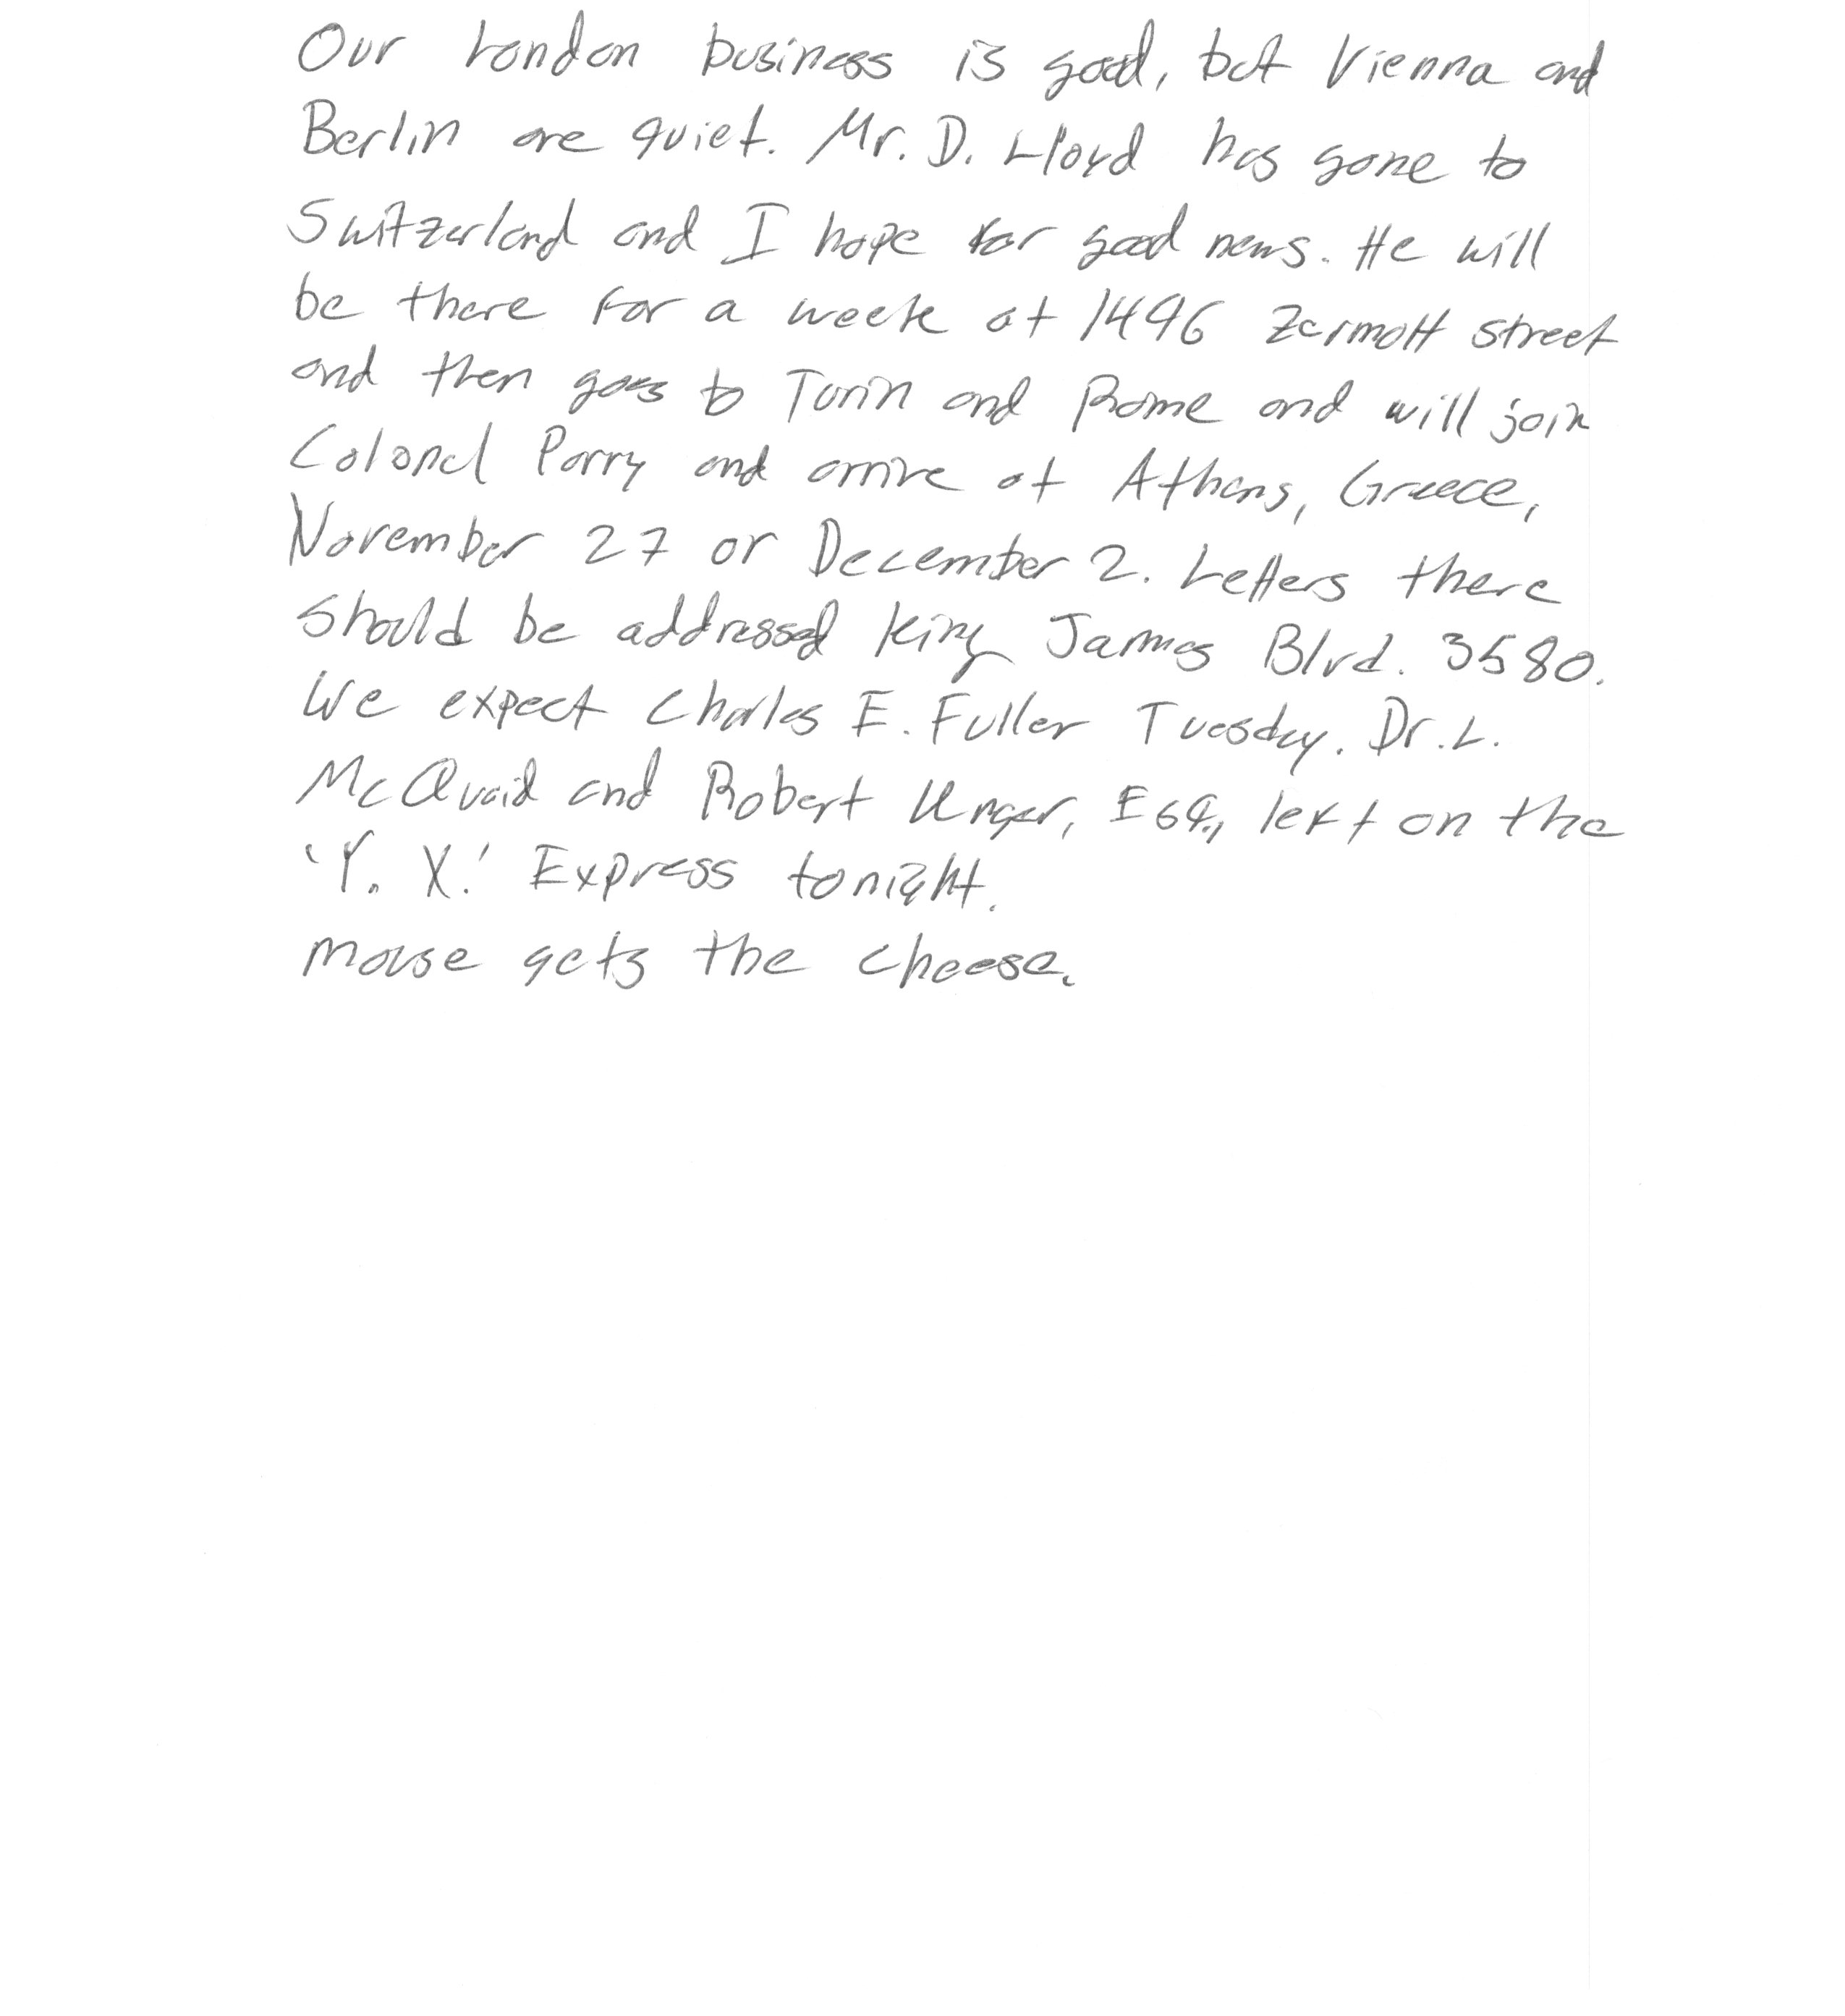 Our London business is good, but Vienna and
Berlin are quiet. Mr. D. Lloyd has gone to
Switzerland and I hope for good news. He will
be there for a week at 1496 Zermott street
and then goes to Turin and Rome and will join
Colonel Parry and arrive at Athens, Greece,
November 27 or December 2. Letters there
should be addressed King James Blvd. 3580.
We expect Charles E. Fuller Tuesday. Dr. L.
McQuaid and Robert Unger, Esq., left on the
'Y. X.' Express tonight.
mouse gets the cheese.